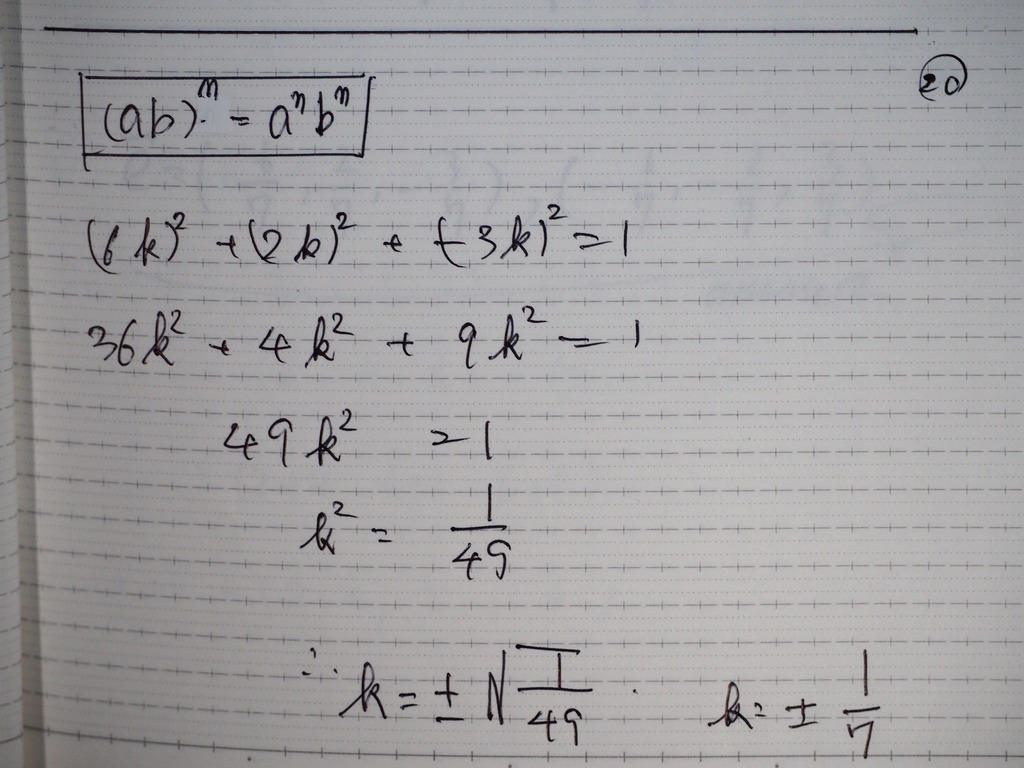 20
(ab)ⁿ = aⁿbⁿ
(6k)² + (2k)² + (-3k)² = 1
36k² + 4k² + 9k² = 1
49k² = 1
k² = 1/49
∴ k = ± √(1/49) . k = ± 1/7